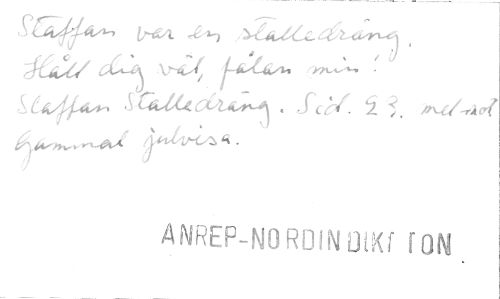 Staffan var en stalledräng.
Håll dig väl, fålan min!
Staffan Stalledräng. Sid. 23. mel-not
Gammal julvisa.
ANREP-NORDIN DIKT TON